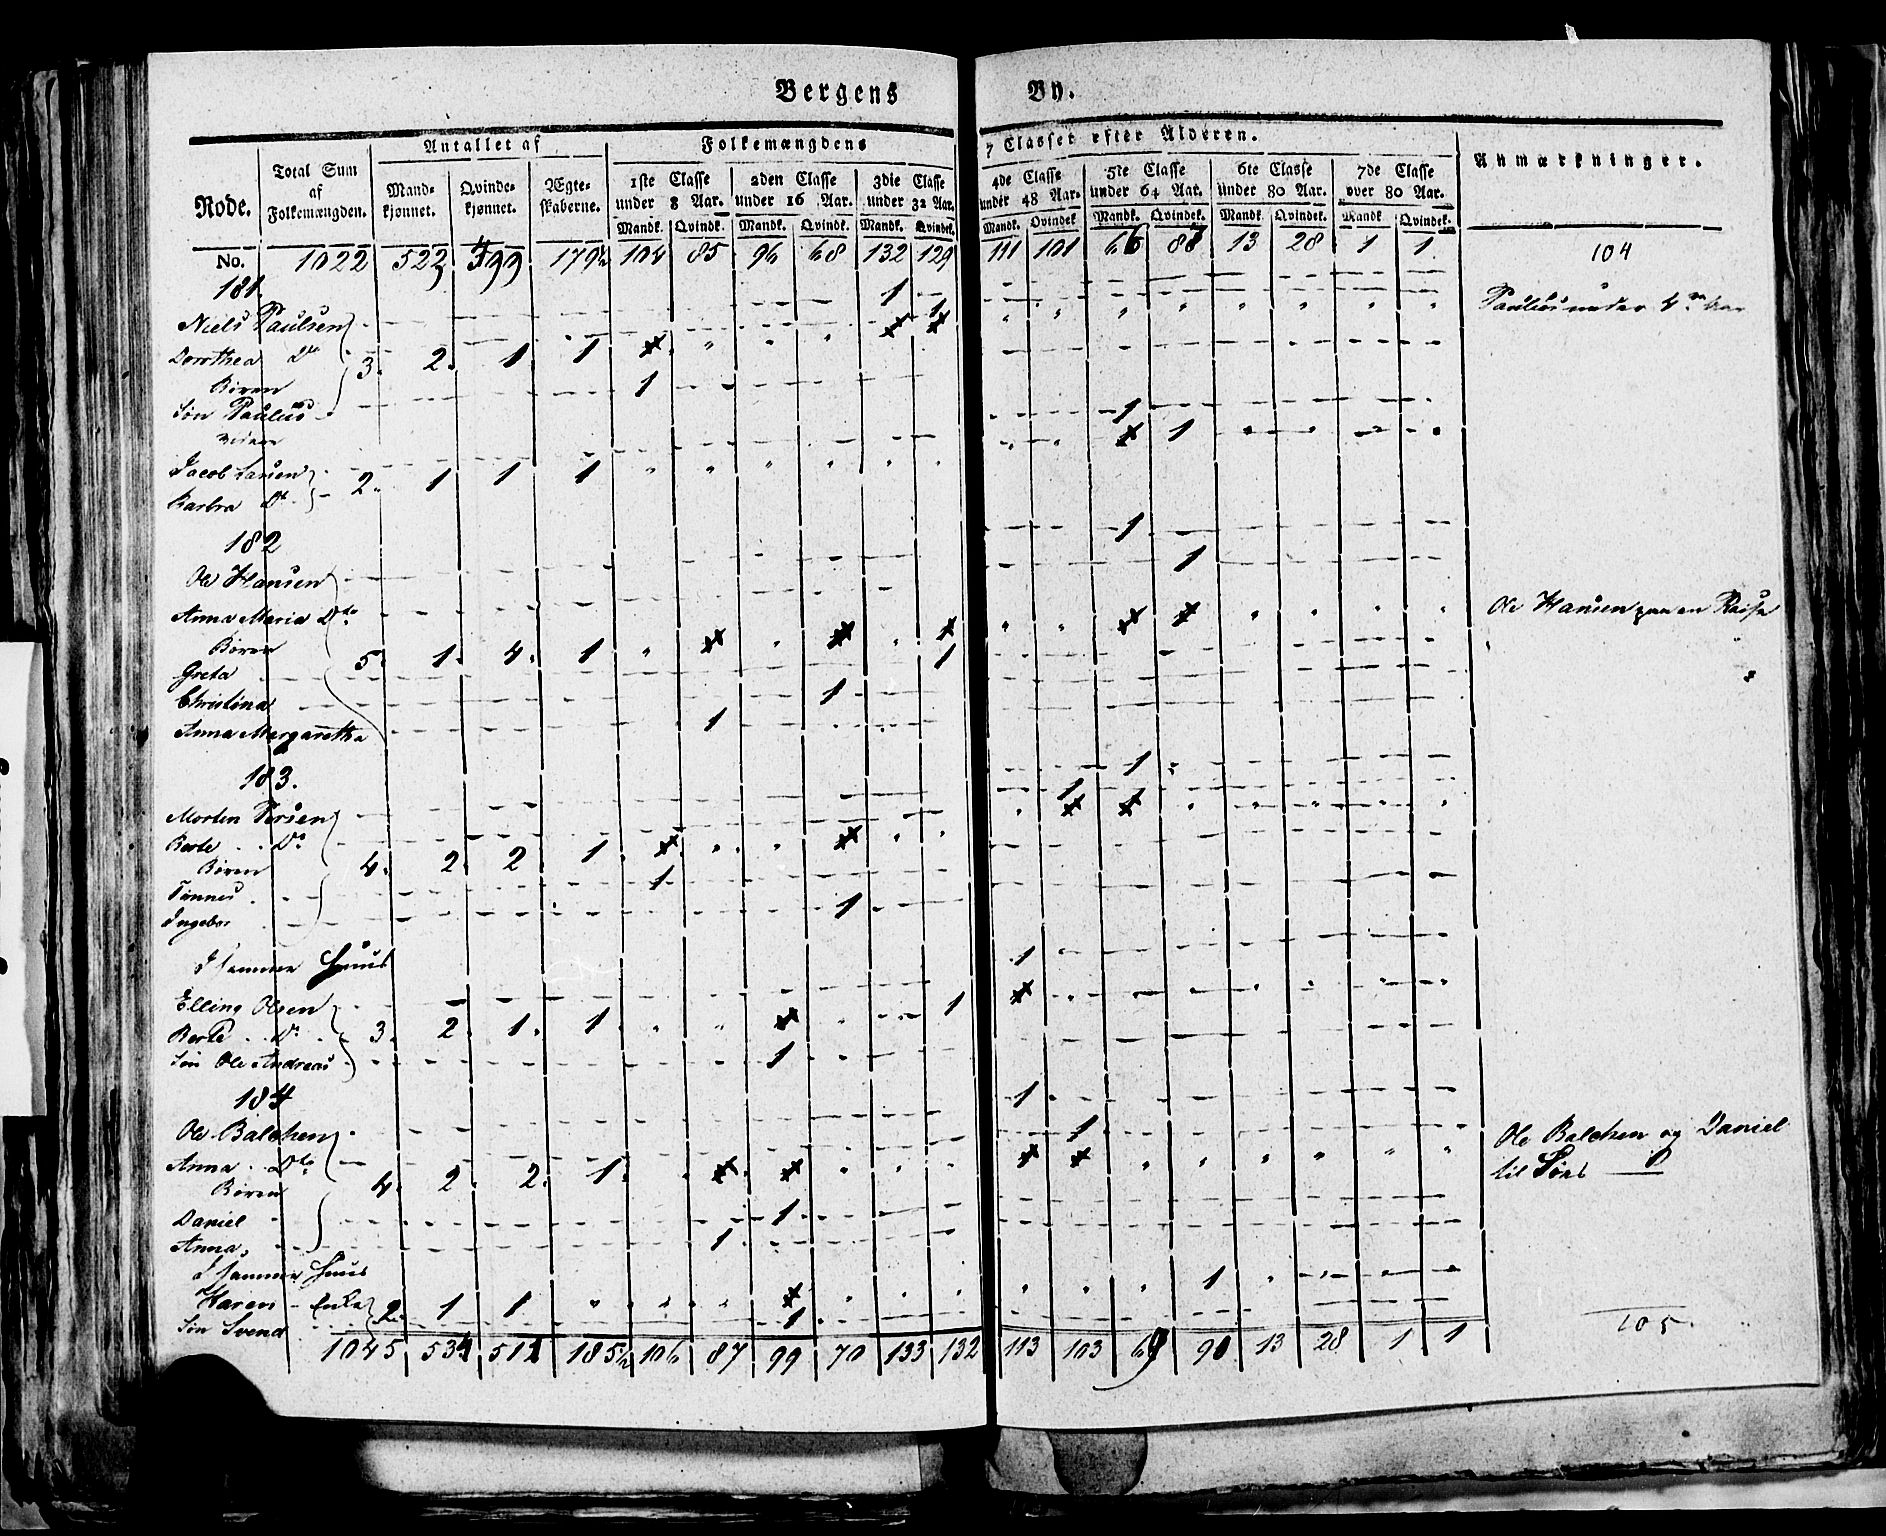 Bergens By.
Rode. Total Sum af Folkemængden. Antallet af Folkemængdens 7 Classer efter Alderen. Anmærkninger.
Mandkjønnet. Qvindekjønnet. Ægteskaberne. 1ste Classe under 8 Aar. 2den Classe under 16 Aar. 3die Classe under 32 Aar. 4de Classe under 48 Aar. 5te Classe under 64 Aar. 6te Classe under 80 Aar. 7de Classe over 80 Aar.
Mandk. Qvindk. Mandk. Qvindk. Mandk. Qvindk. Mandk. Qvindek Mandk. Qvindek. Mandk. Qvindek. Mandk Qvindek.
No. 1022 522 499 179½ 104 85 96 68 132 129 111 101 66 87 13 28 1 1 104
181.
Niels Paulsen 1
Dorothea Do 3. 2. 1 1 1
Børen
Søn Paulus 1
Jacob Larsen 2. 1 1 1 1
Barbra Do 1
182
Ole Hansen 1 Ole Hansen paa en Raise
Anna Maria Dto 1
Børen 5. 1. 4. 1
Greta 1
Christina 1
Anna Margaretha 1
183.
Morten Persen 1
Berte Do 1
Børen 4. 2. 2. 1.
Tønnes 1
Ingebor 1
I samme Huus
Elling Olsen 1
Berte Do 3. 2. 1. 1. 1
Søn Ole Andreas 1
184
Ole Balchen 1 Ole Balchen og Daniel
Anna Dto 1 til Søes
Børen 4. 2. 2. 1.
Daniel 1
Anna 1
I samme Huus
Karen Enke 2. 1 1 1
Søn Svend 1
1045 534 511 185½ 106 87 99 70 133 132 113 103 69 90 13 28 1 1 105.